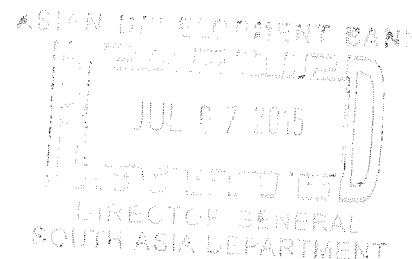 ASIAN DEVELOPMENT BANK
JUL 07 2015
DIRECTOR GENERAL
SOUTH ASIA DEPARTMENT